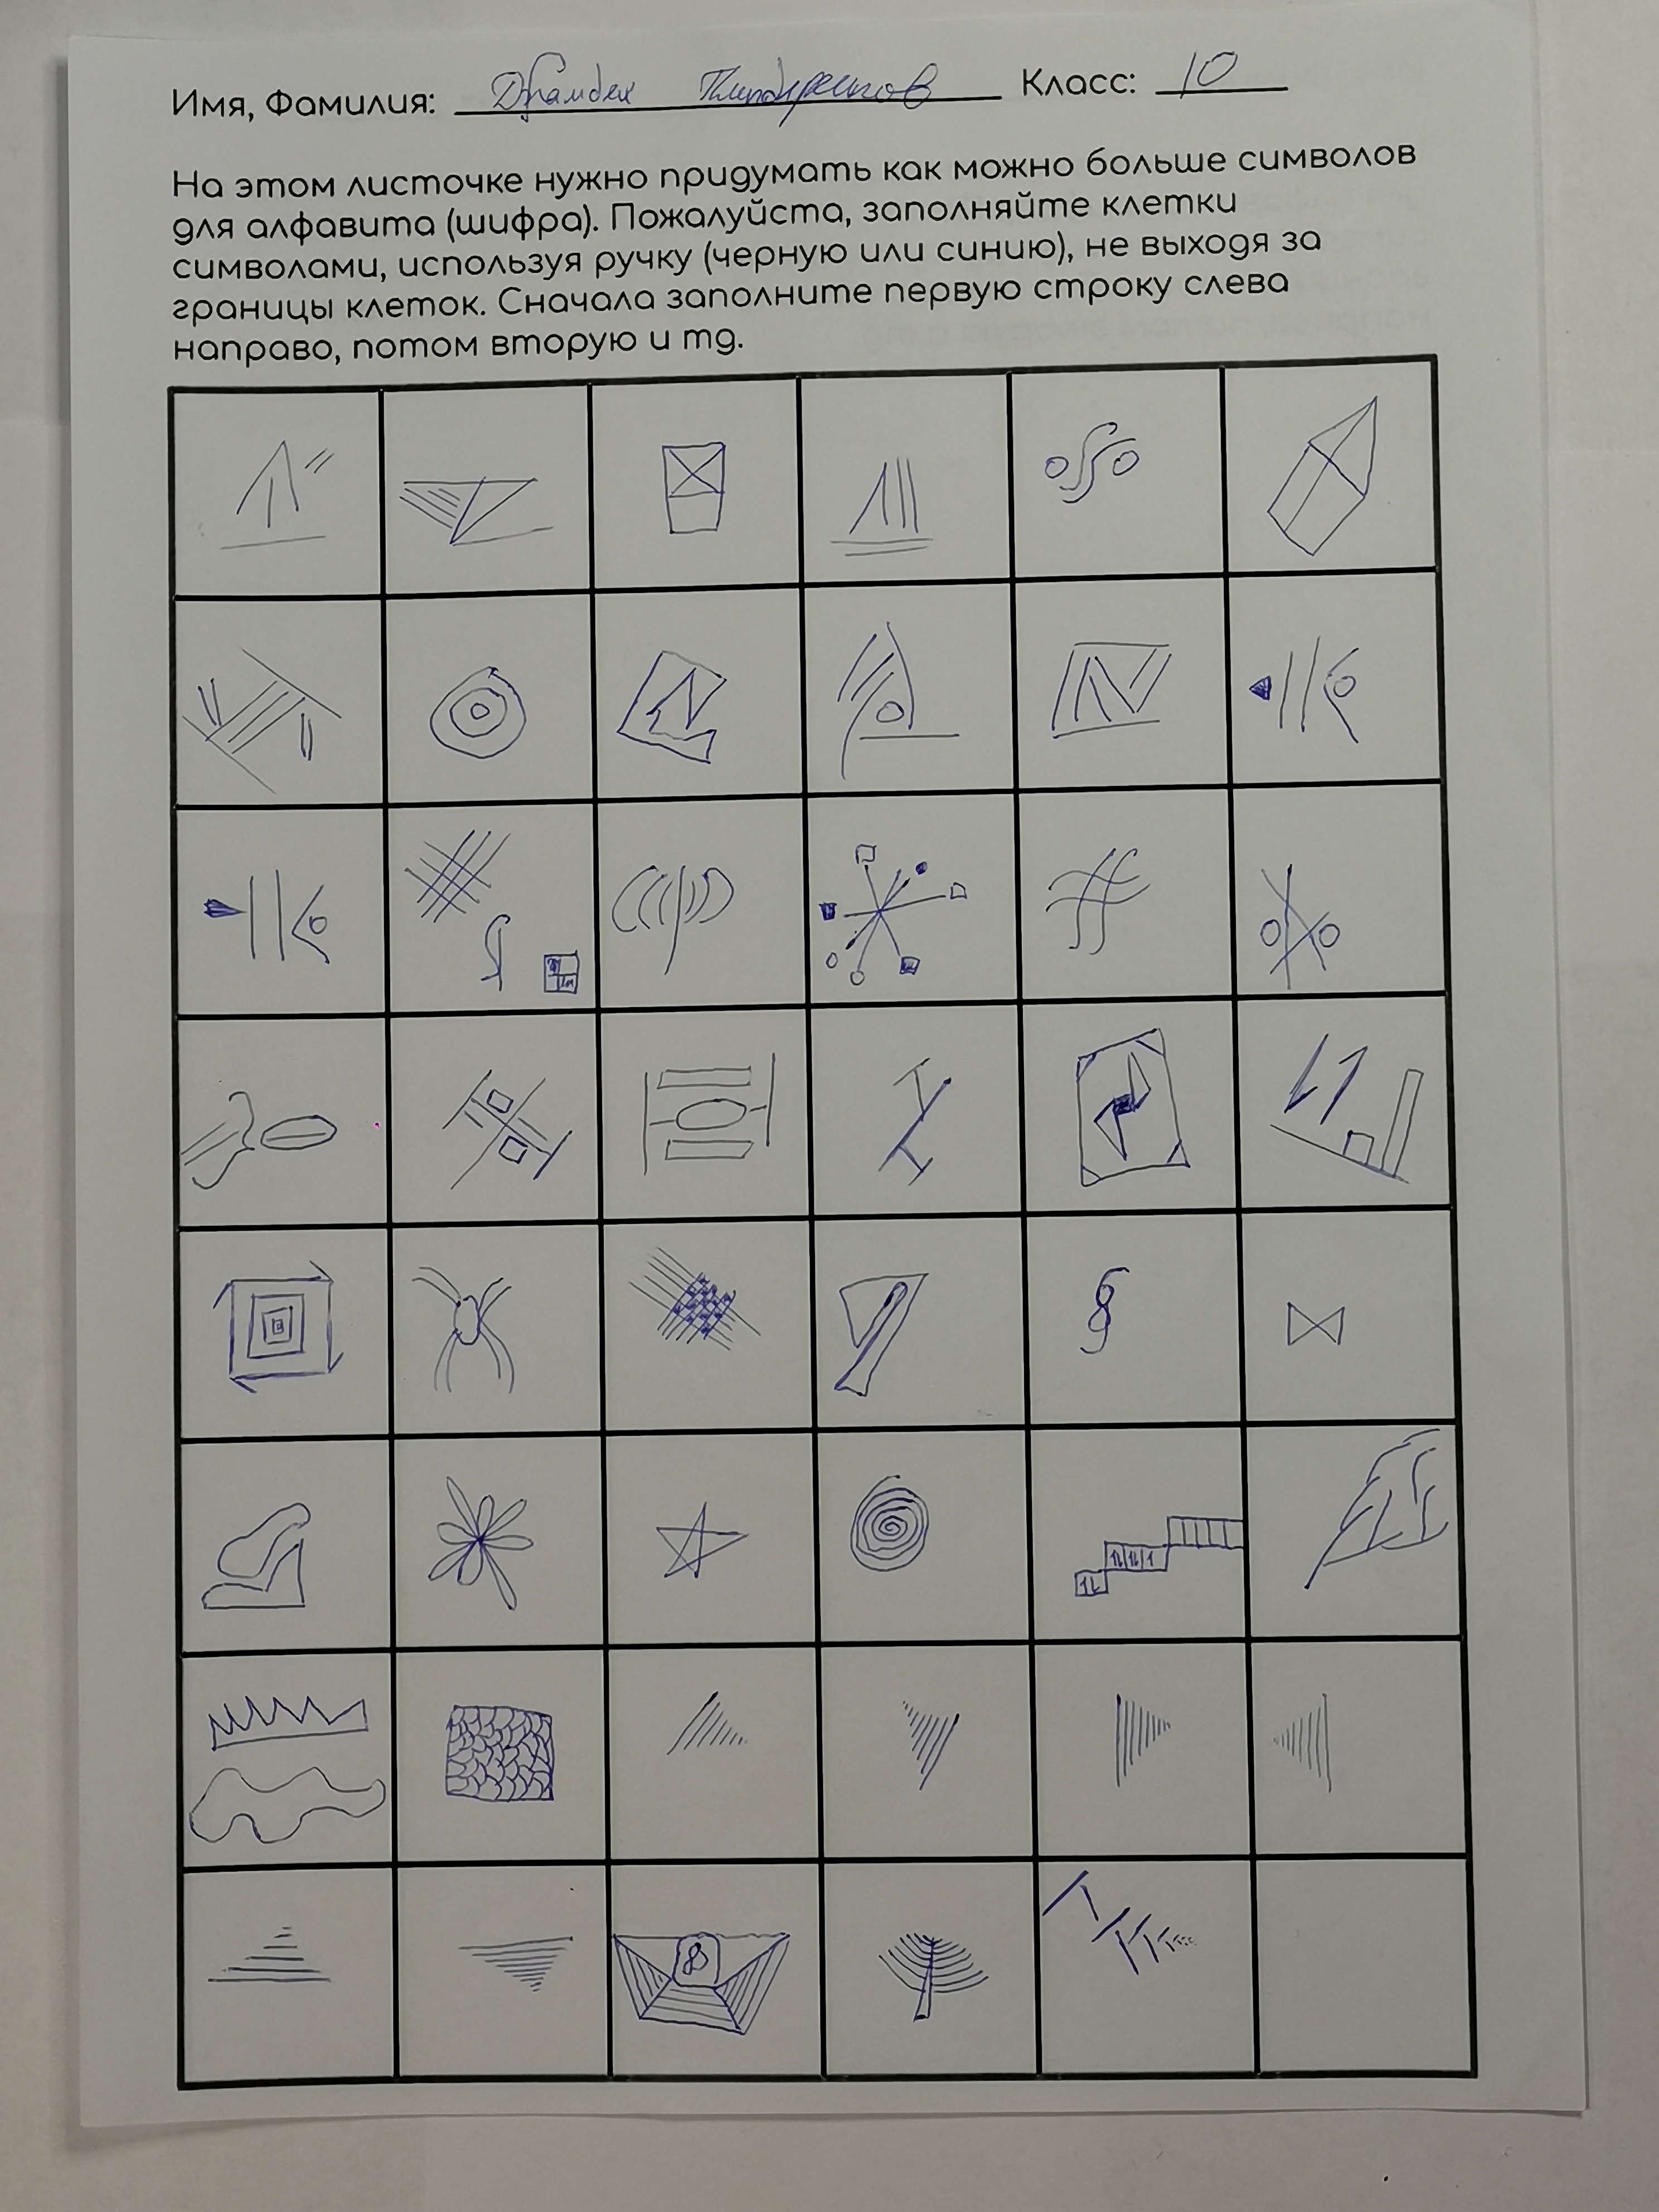 Имя, Фамилия: Класс: 10
На этом листочке нужно придумать как можно больше символов
для алфавита (шифра). Пожалуйста, заполняйте клетки
символами, используя ручку (черную или синию), не выходя за
границы клеток. Сначала заполните первую строку слева
направо, потом вторую и тд.